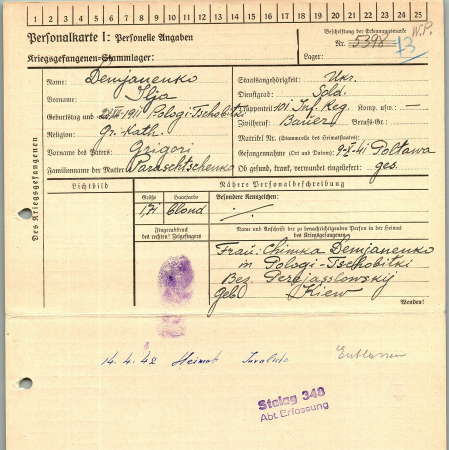 1 2 3 4 5 6 7 8 9 10 11 12 13 14 15 16 17 18 19 20 21 22 23 24 25
Personalkarte I: Personelle Angaben
Beschriftung der Erkennungsmarke
W.P.
Nr. 5398
Kriegsgefangenen-Stammlager:
Lager:
Des Kriegsgefangenen
Name: Demjanenko
Staatsangehörigkeit: Ukr.
Vorname: Ilja
Dienstgrad: Sold.
Geburtstag und 1911 Pologi-Tschobitki
Truppenteil: 101 Inf. Reg. Komp. usw.: —
Religion: Gr.-Kath.
Zivilberuf: Bauer Berufs-Gr.:
Vorname des Vaters: Grigori
Matrikel Nr. (Stammrolle des Heimatstaates):
Familienname der Mutter: Paraschtschenko
Gefangennahme (Ort und Datum): 9-X-41 Poltawa
Ob gesund, krank, verwundet eingeliefert: ges.
Lichtbild
Nähere Personalbeschreibung
Größe
Haarfarbe
Besondere Kennzeichen:
1,71
blond
Fingerabdruck
des rechten! Zeigefingers
Name und Anschrift der zu benachrichtigenden Person in der Heimat
des Kriegsgefangenen
Frau: Chimka Demjanenko
in Pologi-Tschobitki
Bez. Perejasslowskij
Geb. Kiew
Wenden!
14.4.42 Heimat Invalide
Entlassen
Stalag 348
Abt. Erfassung